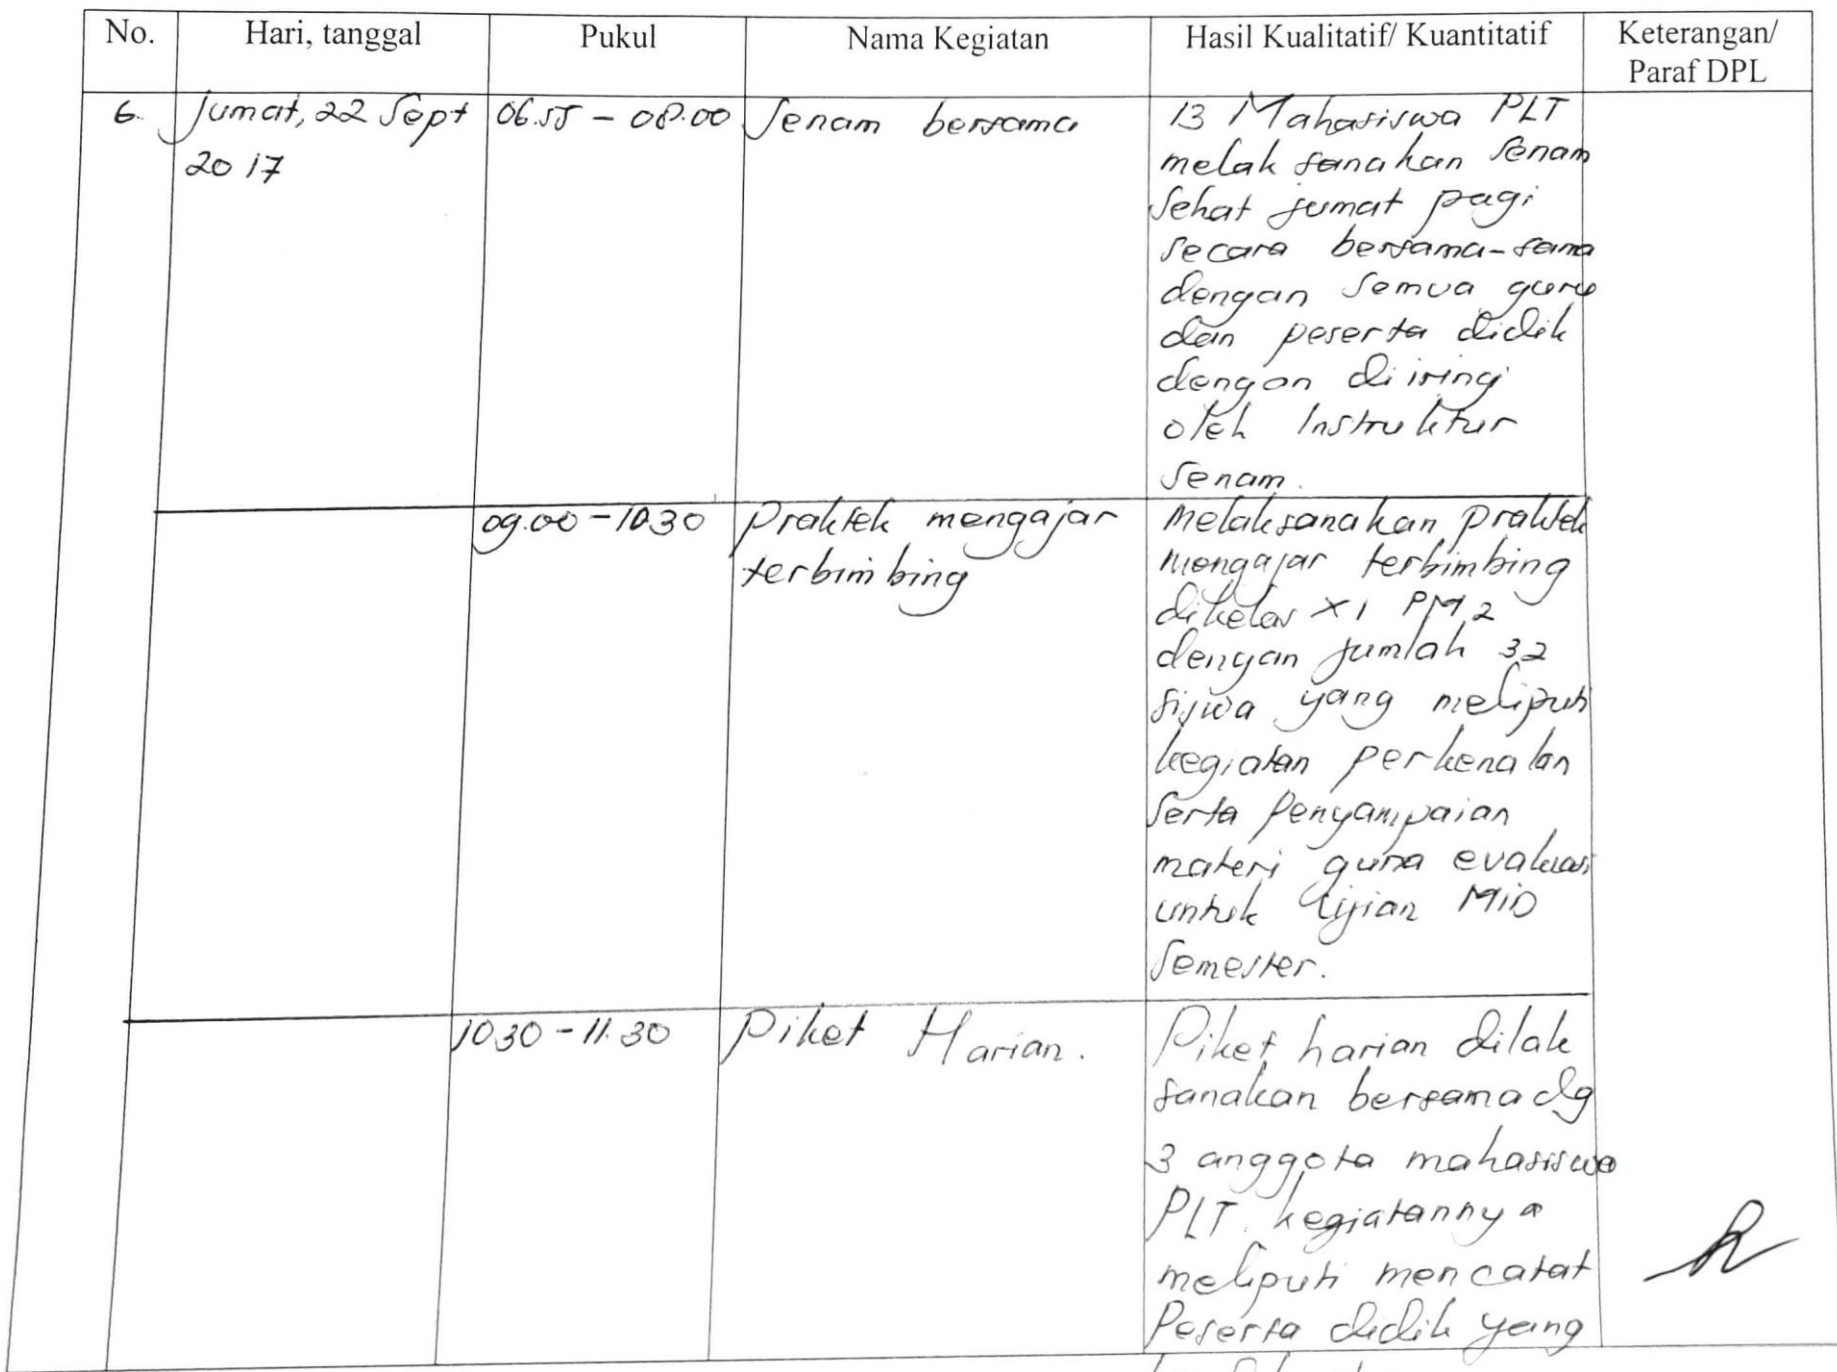 No. Hari, tanggal Pukul Nama Kegiatan Hasil Kualitatif/ Kuantitatif Keterangan/
Paraf DPL
6. Jumat, 22 Sept 06.55 - 08.00 Senam bersama 13 Mahasiswa PLT
2017 melak sanakan senam
sehat jumat pagi
secara bersama-sama
dengan semua guru
dan peserta didik
dengan diiringi
oleh Instruktur
senam.
09.00 - 10.30 Praktek mengajar Melaksanakan praktek
terbimbing mengajar terbimbing
dikelas XI PM 2
dengan jumlah 32
siswa yang meliputi
kegiatan perkenalan
serta penyampaian
materi guna evaluasi
untuk Ujian MID
Semester.
10.30 - 11.30 Piket Harian. Piket harian dilak
sanakan bersama dg
3 anggota mahasiswa
PLT. kegiatannya
meliputi mencatat
Peserta didik yang